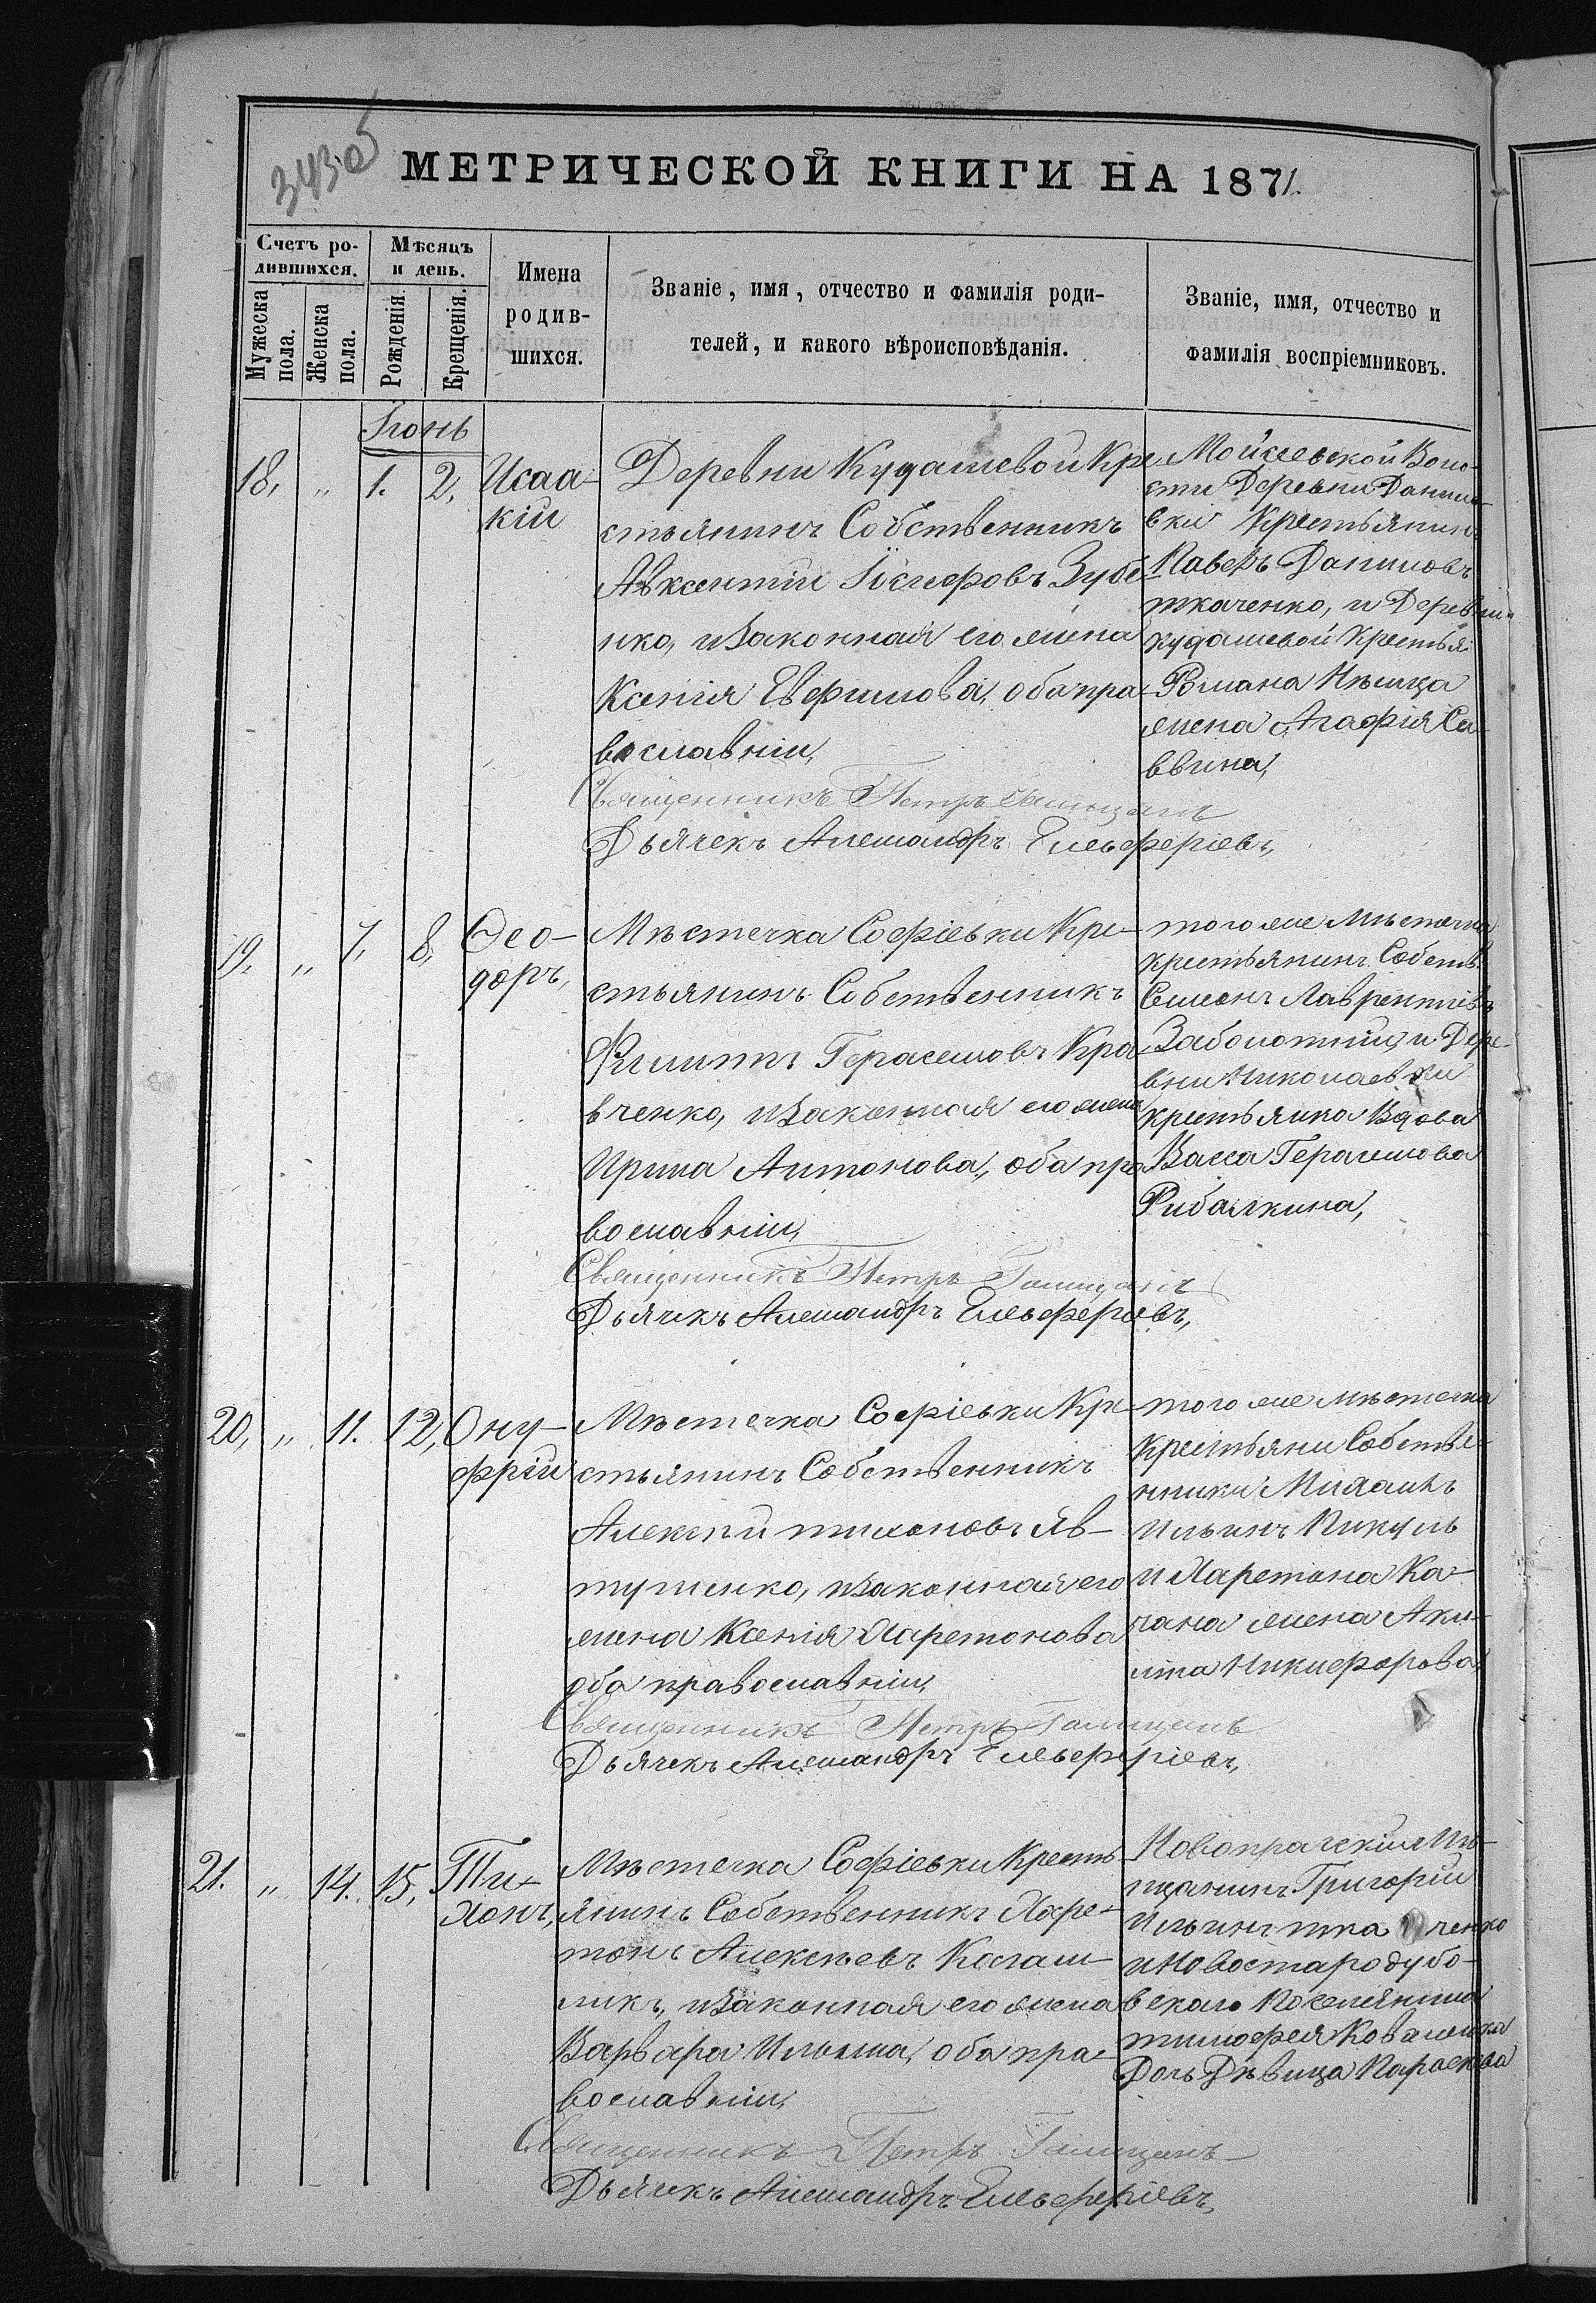 343об
МЕТРИЧЕСКОЙ КНИГИ НА 1871.
Счетъ ро-
дившихся.
Мѣсяцъ
и день.
Мужеска
пола.
Женска
пола.
Рожденія.
Крещенія.
Имена
родив-
шихся.
Званіе, имя, отчество и фамилія роди-
телей, и какого вѣроисповѣданія.
Званіе, имя, отчество и
фамилія воспріемниковъ.
Іюнь
18, „ 1. 2, Исаа-
кій
Деревни Кудашевой Кре
стьянинъ Собственникъ
Авксентій Зубе
нко, и законная его жена
Ксенія Евфимова, оба пра-
вославніи,
Священникъ Петръ
Дьячекъ Александръ Елевферіевъ,
Мойсеевской Воло-
сти Деревни Данило-
вки Крестьянинъ
Павелъ Даниловъ
ткаченко, и Деревни
кудашевой Крестья
Романа Нѣмца
жена Агафія Са-
ввина,
19. „ 7, 8, Ѳео-
доръ,
Мѣстечка Софіевки Кре-
стьянинъ Собственникъ
Филиппъ Герасимовъ Кра
вченко, и законная его жена
Ирина Антонова, оба пра
вославніи,
Священникъ Петръ
Дьячекъ Александръ Елевферіевъ,
того же Мѣстечка
крестьянинъ Собств.
Симеонъ Лаврентіевъ
Заболотній, и Дере-
вни Николаевки
крестьянка Вдова
Васса Герасимова
Рибалкина,
20, „ 11. 12, Ону-
фрій
Мѣстечка Софіевки Кре-
стьянинъ Собственникъ
Алексій тихоновъ Яв-
тушенко, и законная его
жена Ксенія Харитонова
оба православніи,
Священникъ Петръ
Дьячекъ Александръ Елевферіевъ,
того же мѣстечка
Крестьяни Собстве-
нники Михаилъ
Ильинъ Пикуль
и Харитона Ка-
чана жена Аки-
лина Никифорова,
21. „ 14. 15, Ти-
хонъ,
Мѣстечка Софіевки Кресть
янинъ Собственникъ Хари-
тонъ Алексѣевъ
и законная его жена
Варвара Ильина, оба пра-
вославніи,
Священникъ Петръ
Дьячекъ Александръ Елевферіевъ,
Новопражскій Мѣ-
щанинъ Григорій
Ильинъ ткаченко
и Новостародубо-
вскаго Поселянина
тимофея Коваленка
Дочь Дѣвица Параскева